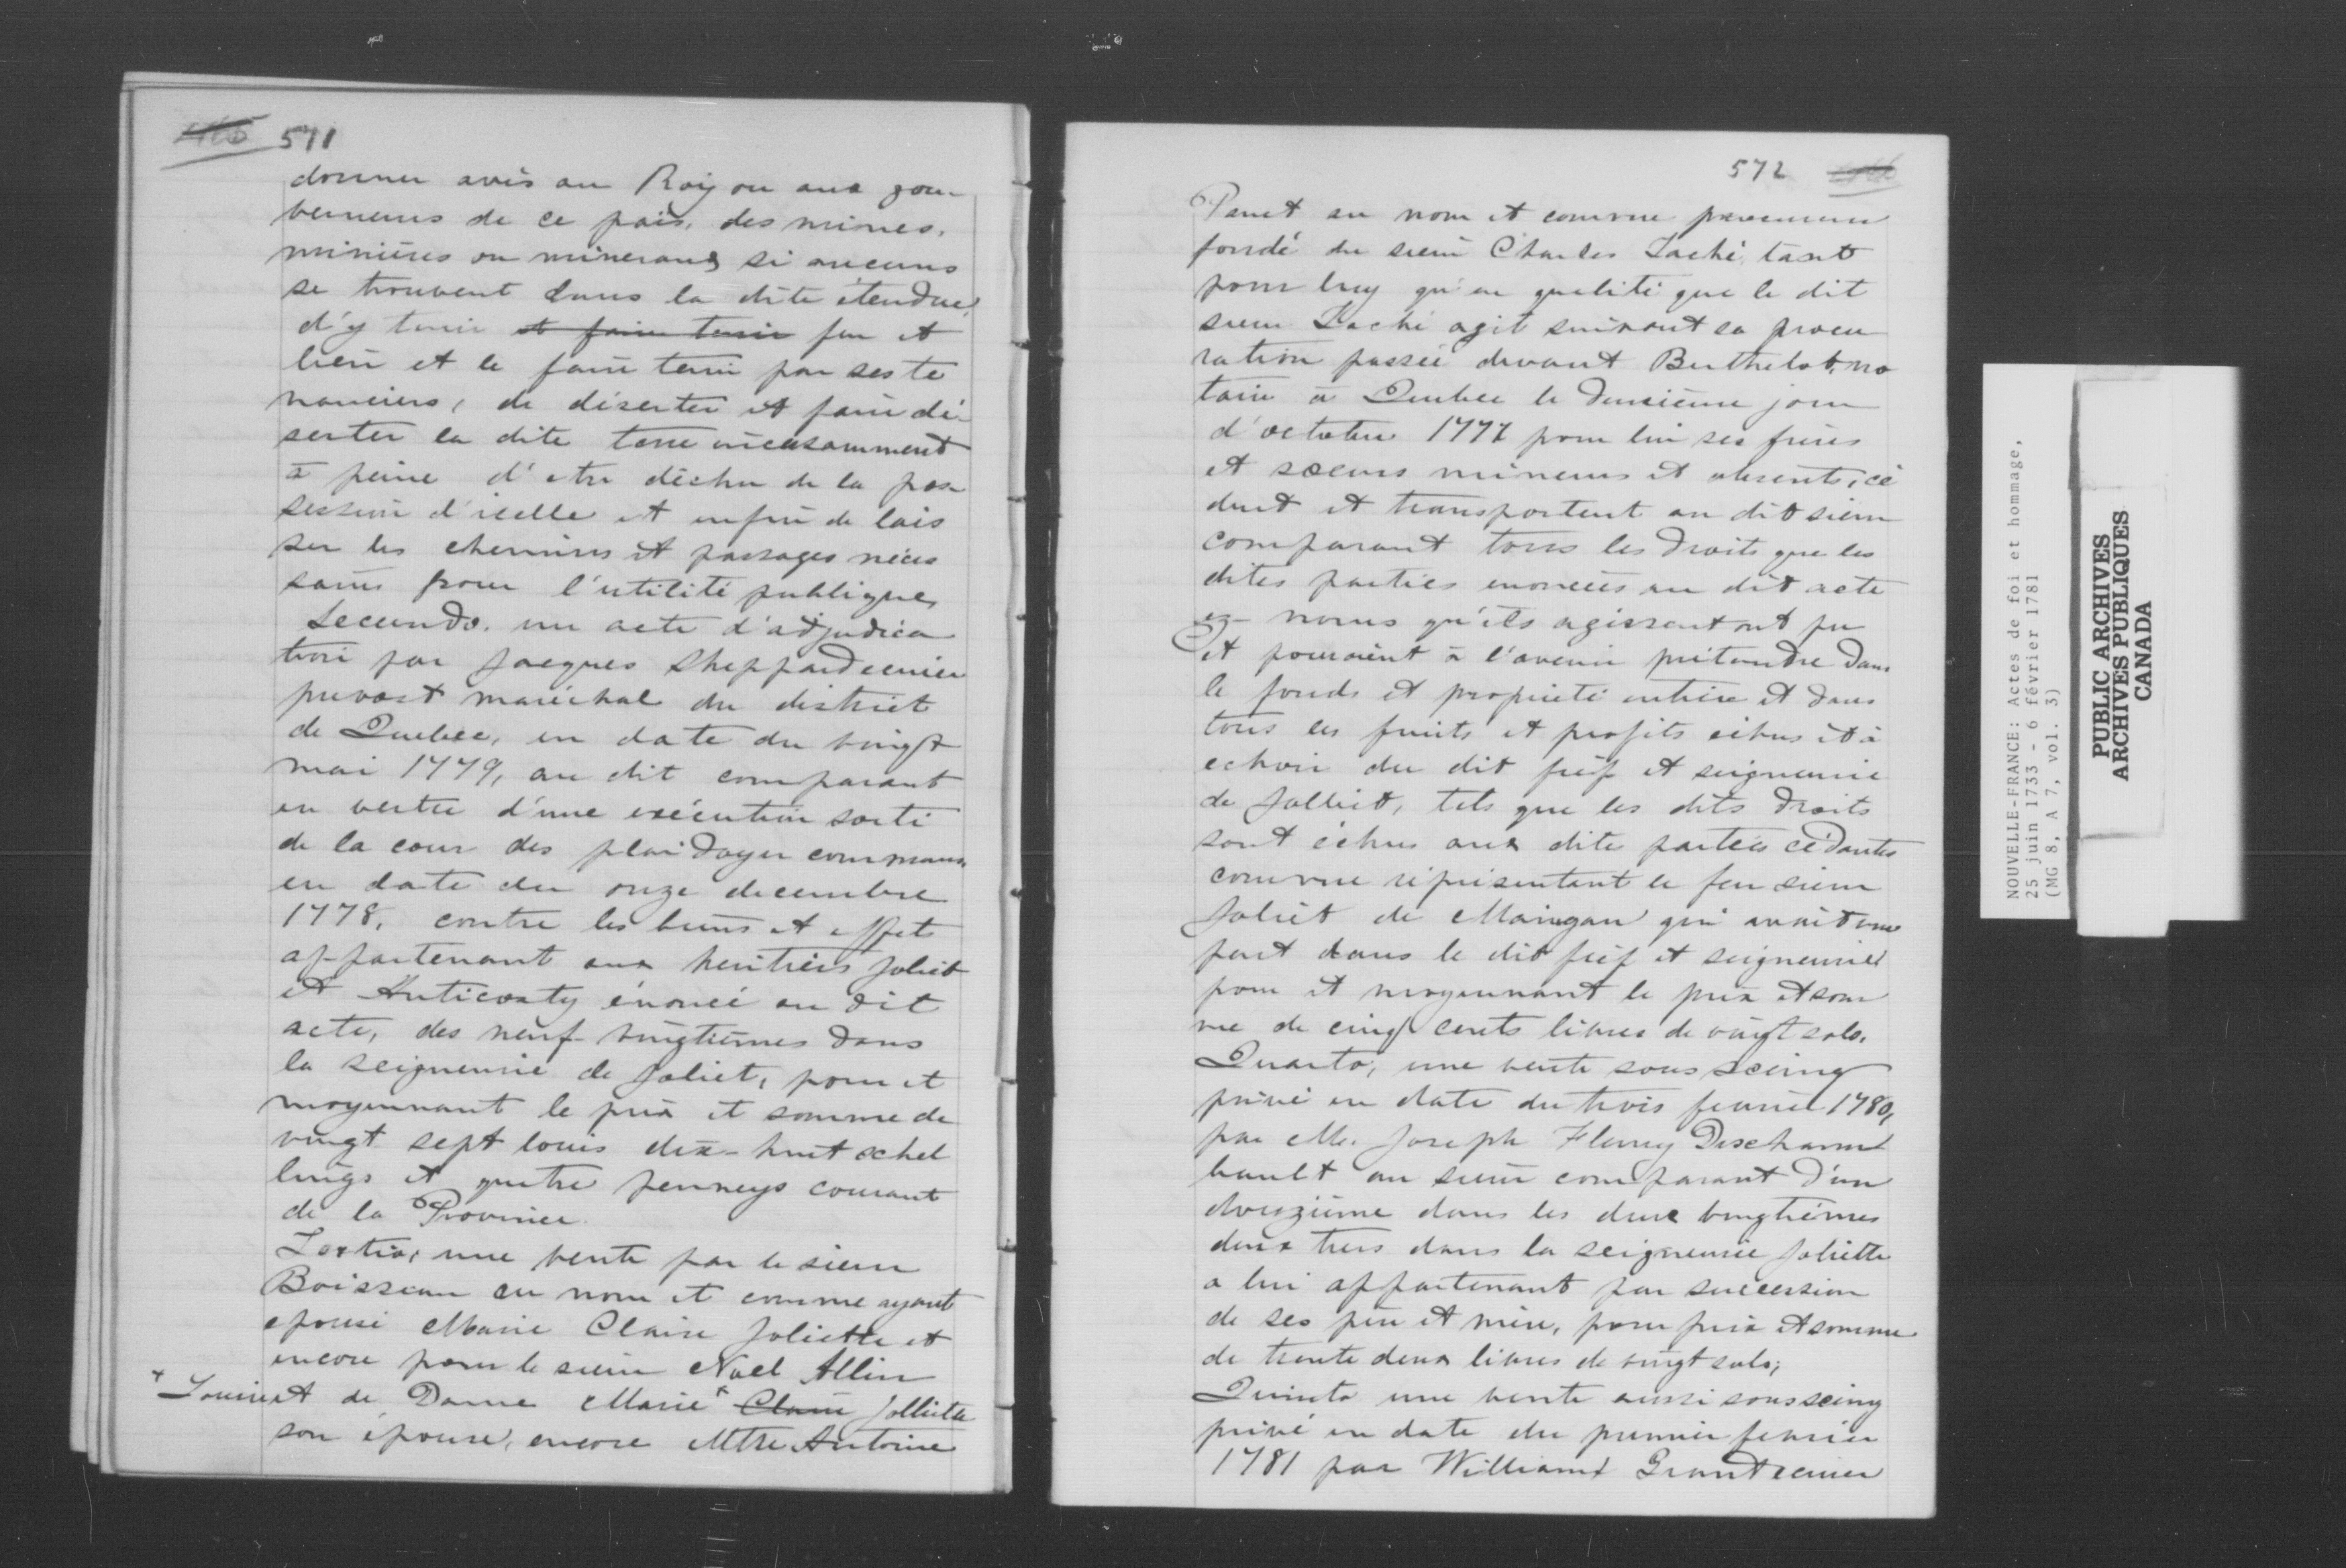 571
donner avis au Roy ou aux gou-
verneurs de ce païs, des mines,
minières ou mineraux si aucuns
se trouvent dans la dite étendue,
d'y tenir et faire tenir feu et
lieu et le faire tenir par ses te
nanciers, de déserter et faire dé-
serter la dite terre incessamment
à peine d'etre déchu de la pos-
session d'icelle et enfin de lais
ser les chemins et passages néces
saires pour l'utilité publique,
Secundo. un acte d'adjudica
tion par Jacques Sheppard ecuier
prevost maréchal du district
de Quebec, en date du vingt
mai 1779, au dit comparant
en vertu d'une exécution sorti
de la cour des plaidoyer communs
en date du onze decembre
1778, contre les biens et effets
appartenant aux heritiers Joliet
et Anticosty énoncé au dit
acte, des neuf-vingtièmes dans
la seigneurie de Joliet, pour et
moyennant le prix et somme de
vingt sept louis dix-huit schel
lings et quatre penneys courant
de la Province.
Tertio, une vente par le sieur
Boisseau au nom et comme ayant
epousé Marie Claire Joliette et
encore pour le sieur Noel Allin
+ Louise et de Dame Marie + Claire Jolliette
son épouse, encore Mtre Antoine
572
Panet au nom et comme procureur
fondé du sieur Charles Taché, tant
pour luy qu'en qualité que le dit
sieur Taché agit suivant sa procu
ration passée devant Berthelot, no
taire à Quebec le deuxième jour
d'octobre 1777 pour lui ses frères
et soeurs mineurs et absents, cé
dent et transportent au dit sieur
comparant tous les droits que les
dites parties enoncées au dit acte
ez-noms qu'ils agissent ont pu
et pouroient à l'avenir prétendre dans
le fonds et propriété entière et dans
tous les fruits et profits échus et à
echoir du dit fief et seigneurie
de Jolliet, tels que les dits droits
sont échus aux dite parties cédantes
comme réprésentant le feu sieur
Joliet de Maingan qui avait une
part dans le dit fief et seigneurie
pour et moyennant le prix et som
me de cinq cents livres de vingt sols.
Quarto, une vente sous seing
privé en date du trois fevrier 1780,
par M. Joseph Fleury Descham
bault au sieur comparant d'un
douzième dans les deux vingtièmes
deux tiers dans la seigneurie Joliette
a lui appartenant par succession
de ses père et mère, pour prix et somme
de trente deux livres de vingt sols;
Quinto une vente aussi sous seing
privé en date du premier fevrier
1781 par William Grant ecuier
NOUVELLE-FRANCE: Actes de foi et hommage,
25 juin 1733 - 6 février 1781
(MG 8, A 7, vol. 3)
PUBLIC ARCHIVES
ARCHIVES PUBLIQUES
CANADA